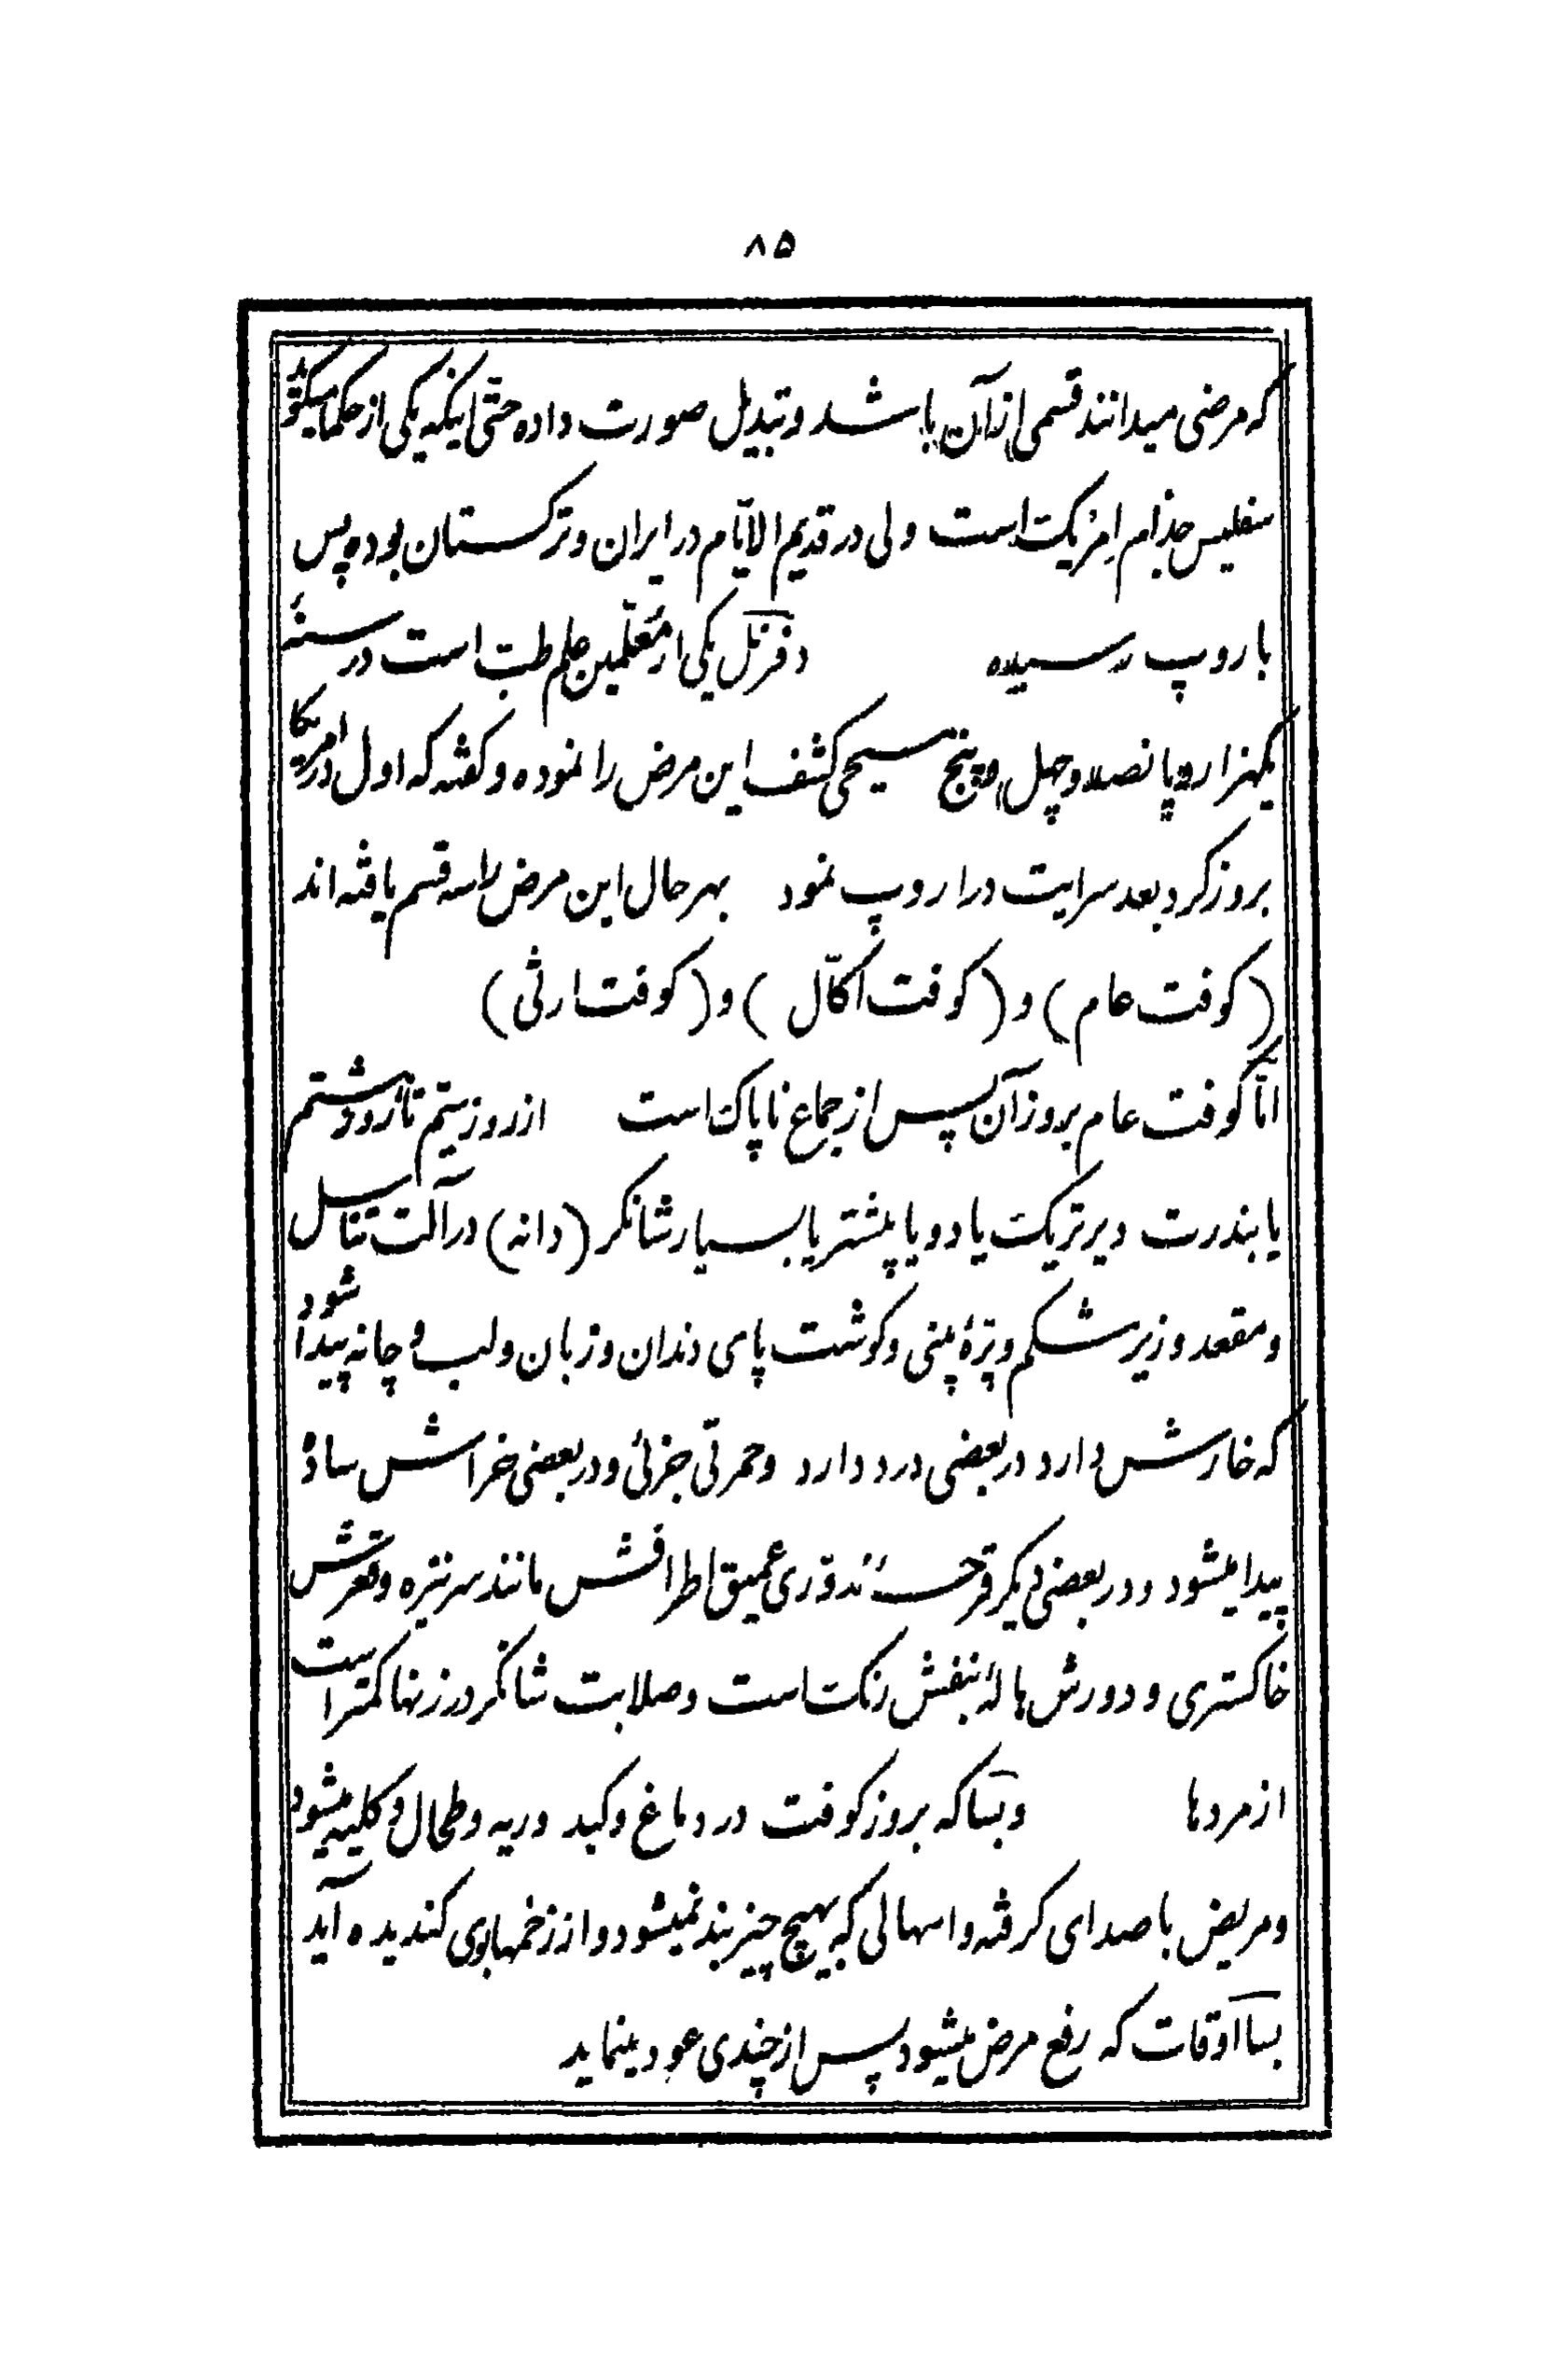 ۸۵
که مرضی میدانند قسمی از آن باشد و تبدیل صورت داده حتّی اینکه یکی از حکما میکوید
سفلیس جذام امریک است ولی در قدیم الایّام در ایران و ترکستان بوده پس
باروپ رسیده دفرنل یکی از معلّمین علم طبّ است در سنهٔ
یکهزار و پانصد و چهل و پنج مسیحی کشف این مرض را نموده و کفته که اول در امریکا
بروز کرد بعد سرایت در اروپ نمود بهر حال این مرض را سه قسم یافته اند
(کوفت عام) و (کوفت اکّال) و (کوفت ارثی)
امّا کوفت عام بروز آن پس از جماع ناپاک است از روز سیّم تا روز هشتم
یا بندرت دیرتر یک یا دو یا پیشتر یا بسیار شانکر (دانه) در آلت تناسل
و مقعد و زیر شکم و پرّهٔ بینی و کوشت پای دندان و زبان و لب و چانه پیدا شود
که خارش دارد در بعضی درد دارد و حمرتی جزئی و در بعضی خراش سادهٔ
پیدا میشود و در بعضی دیکر قرحهٔ مدوّری عمیق اطرافش مانند سر نیزه و قعرش
خاکستری و دورش هالهٔ بنفش رنک است و صلابت شانکر در زنها کمتر است
از مردها و بسا که بروز کوفت در دماغ و کبد و ریه و طحال و کلیه میشود
و مریض با صدای کرفته و اسهالی که بهیچ چیز بند نمیشود و از زخمها بوی کندیده آید
بسا اوقات که رفع مرض میشود پس از چندی عود مینماید